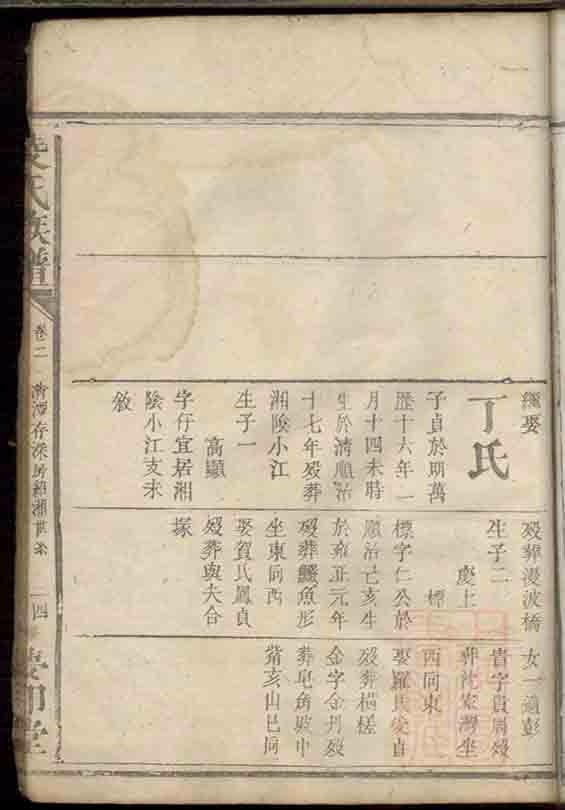 繼娶
丁氏
子貞於明萬
歷十六年一
月十四未時
生於清順治
十七年歿葬
湘陰小江
生子一
高顯
字仔宜居湘
陰小江支未
敘
歿葬漫波橋
生子二
慶上
標
標字仁公於
順治己亥生
於雍正元年
歿葬鱷魚形
坐東向西
娶賀氏鳳貞
歿葬與夫合
塚
女一適彭
貴字貴周歿
葬 家灣坐
西向東
娶羅氏 貞
歿葬橫槎
金字金丹歿
葬皂角 中
 亥山巳向
氏族譜
卷二
存 房紹湘世系
四